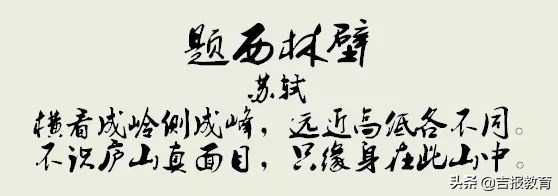 题西林壁
苏轼
横看成岭侧成峰，远近高低各不同。
不识庐山真面目，只缘身在此山中。
头条@吉报教育